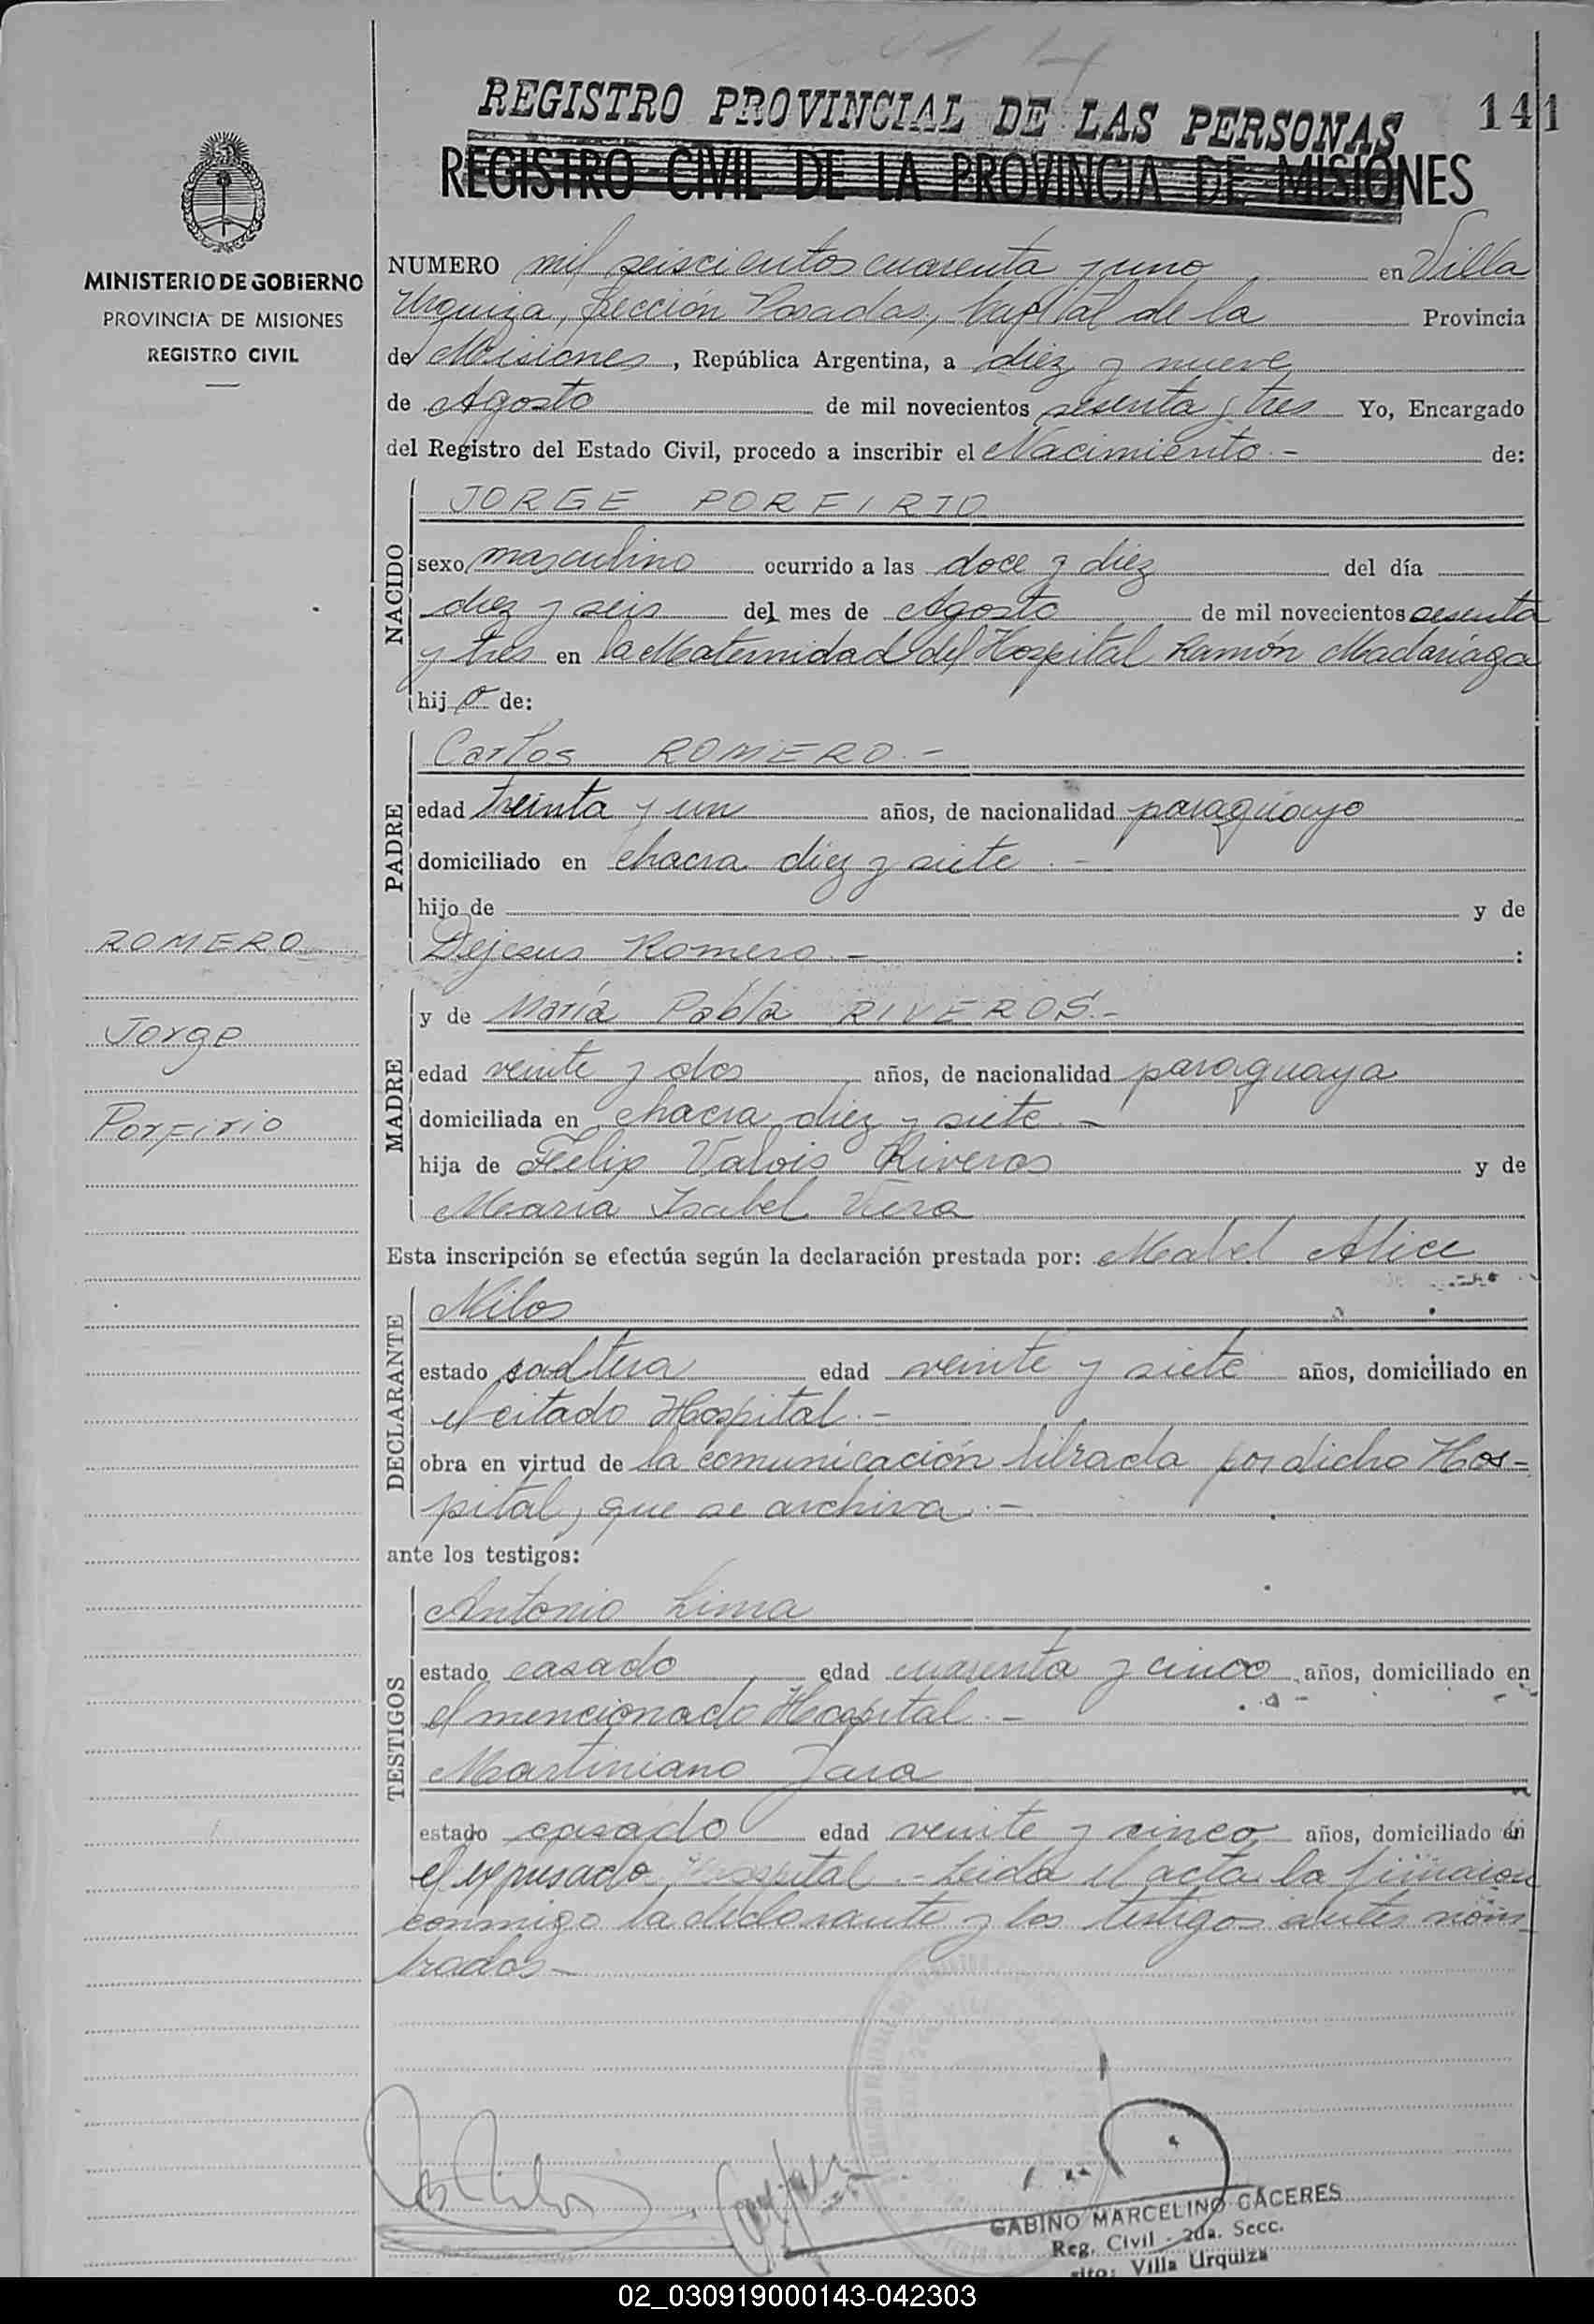 REGISTRO PROVINCIAL DE LAS PERSONAS
141
REGISTRO CIVIL DE LA PROVINCIA DE MISIONES
MINISTERIO DE GOBIERNO
PROVINCIA DE MISIONES
REGISTRO CIVIL
NUMERO mil seiscientos cuarenta y uno en Villa
Urquiza, Sección Posadas, Capital de la Provincia
de Misiones, República Argentina, a diez y nueve
de Agosto de mil novecientos sesenta y tres Yo, Encargado
del Registro del Estado Civil, procedo a inscribir el Nacimiento.- de:
NACIDO
JORGE PORFIRIO
sexo masculino ocurrido a las doce y diez del día
diez y seis del mes de Agosto de mil novecientos sesenta
y tres en la Maternidad del Hospital Ramón Madariaga
hijo de:
PADRE
Carlos ROMERO.-
edad treinta y un años, de nacionalidad paraguayo
domiciliado en chacra diez y siete.-
hijo de y de
Dejesus Romero.- :
MADRE
y de María Pabla RIVEROS.-
edad veinte y dos años, de nacionalidad paraguaya
domiciliada en chacra diez y siete.-
hija de Felip Valois Riveros y de
María Isabel Viera
ROMERO
Jorge
Porfirio
Esta inscripción se efectúa según la declaración prestada por: Mabel Alice
DECLARANTE
Milos
estado soltera edad veinte y siete años, domiciliado en
el citado Hospital.-
obra en virtud de la comunicación librada por dicho Hos-
pital, que se archiva.-
ante los testigos:
TESTIGOS
Antonio Lima
estado casado edad cuarenta y cinco años, domiciliado en
el mencionado Hospital.-
Martiniano Jara
estado casado edad veinte y cinco años, domiciliado en
el expresado Hospital.- Leida el acta la firmaron
conmigo la declarante y los testigos antes nom-
brados-
GABINO MARCELINO CÁCERES
Reg. Civil - 2da. Secc.
Villa Urquiza
02_030919000143-042303